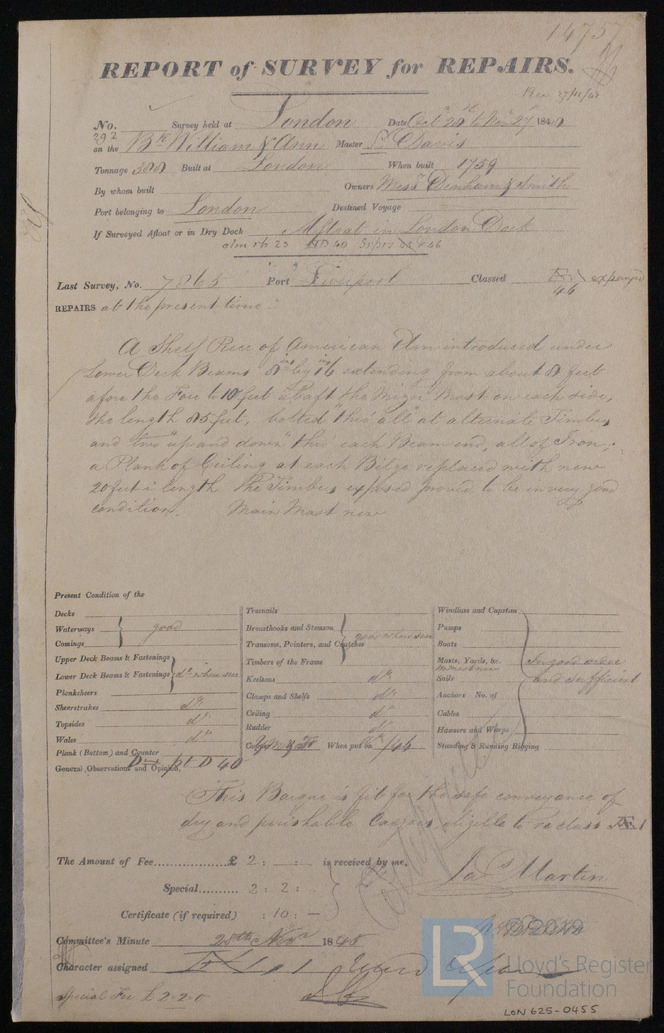 14757
REPORT of SURVEY for REPAIRS.
No. 392 Survey held at London Date Oct 28th to Nov 27 184
on the Bk William & Ann Master Davis
Tonnage 300 Built at London When built 1759
By whom built Owners Messrs Denham & Smith
Port belonging to London Destined Voyage
If Surveyed Afloat or in Dry Dock Afloat in London Dock
Last Survey, No. 7865 Port Liverpool Classed Æ1 46 expired
REPAIRS at the present time:
A Shelf Piece of American Elm introduced under
Lower Deck Beams 8 ins by 16 extending from about 8 feet
afore the Fore to 10 feet abaft the Mizen Mast on each side,
the length 85 feet, bolted thro' all at alternate Timbers
and two "up and down" thro' each Beam end, all of Iron;
a Plank of Ceiling at each Bilge replaced with new
20 feet in length The Timbers exposed proved to be in very good
condition. Main Mast new
Present Condition of the
Decks
Waterways good
Comings
Upper Deck Beams & Fastenings
Lower Deck Beams & Fastenings do where seen
Planksheers
Sheerstrakes do
Topsides do
Wales do
Plank (Bottom) and Counter
Treenails
Breasthooks and Stemson
Transoms, Pointers, and Crutches good where seen
Timbers of the Frame
Keelsons do
Clamps and Shelfs do
Ceiling do
Rudder do
Copper When put on /46
Windlass and Capstan
Pumps
Boats
Masts, Yards, &c. In good order
Mn mast new
Sails and sufficient
Anchors No. of
Cables
Hawsers and Warps
Standing & Running Rigging
General Observations and Opinion, pt D 40
This Barque is fit for the safe conveyance of
dry and perishable Cargoes eligible to reclass Æ1
The Amount of Fee £ 2 : - : - is received by me,
Special 2 : 2 : -
Jas Martin
Certificate (if required) : 10 : -
Committee's Minute 28th Novr 1848
Character assigned Æ 1
special Fee £ 2-2-0
©2019
LR Lloyd's Register
Foundation
LON 625-0455